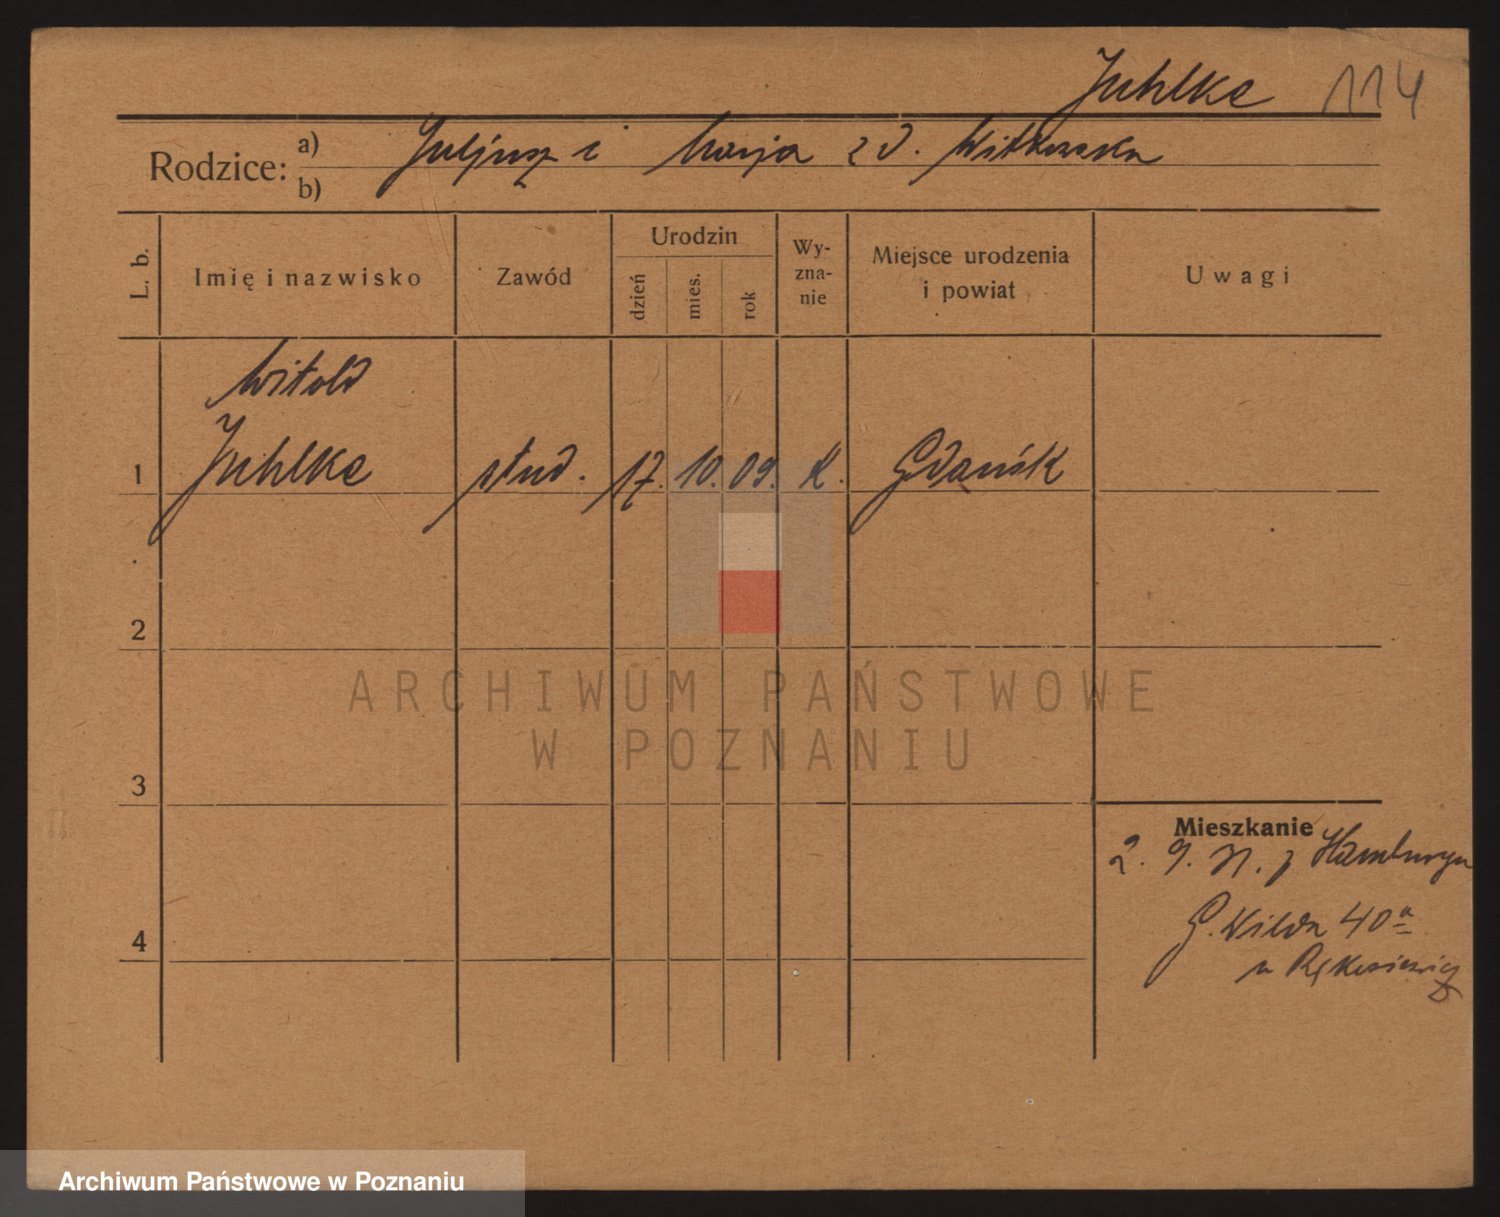 Juhlke 114
Rodzice: a) Juljusz i Marja zd. Witkowska
b)
L. b.
Imię i nazwisko
Zawód
Urodzin
dzień
mies.
rok
Wy-
zna-
nie
Miejsce urodzenia
i powiat
Uwagi
Witold
1 Juhlke stud. 17. 10. 09. k. Gdańsk
2
ARCHIWUM PAŃSTWOWE
W POZNANIU
3
Mieszkanie
2. 9. z Hamburga
G. Wilda 40a
4
Archiwum Państwowe w Poznaniu